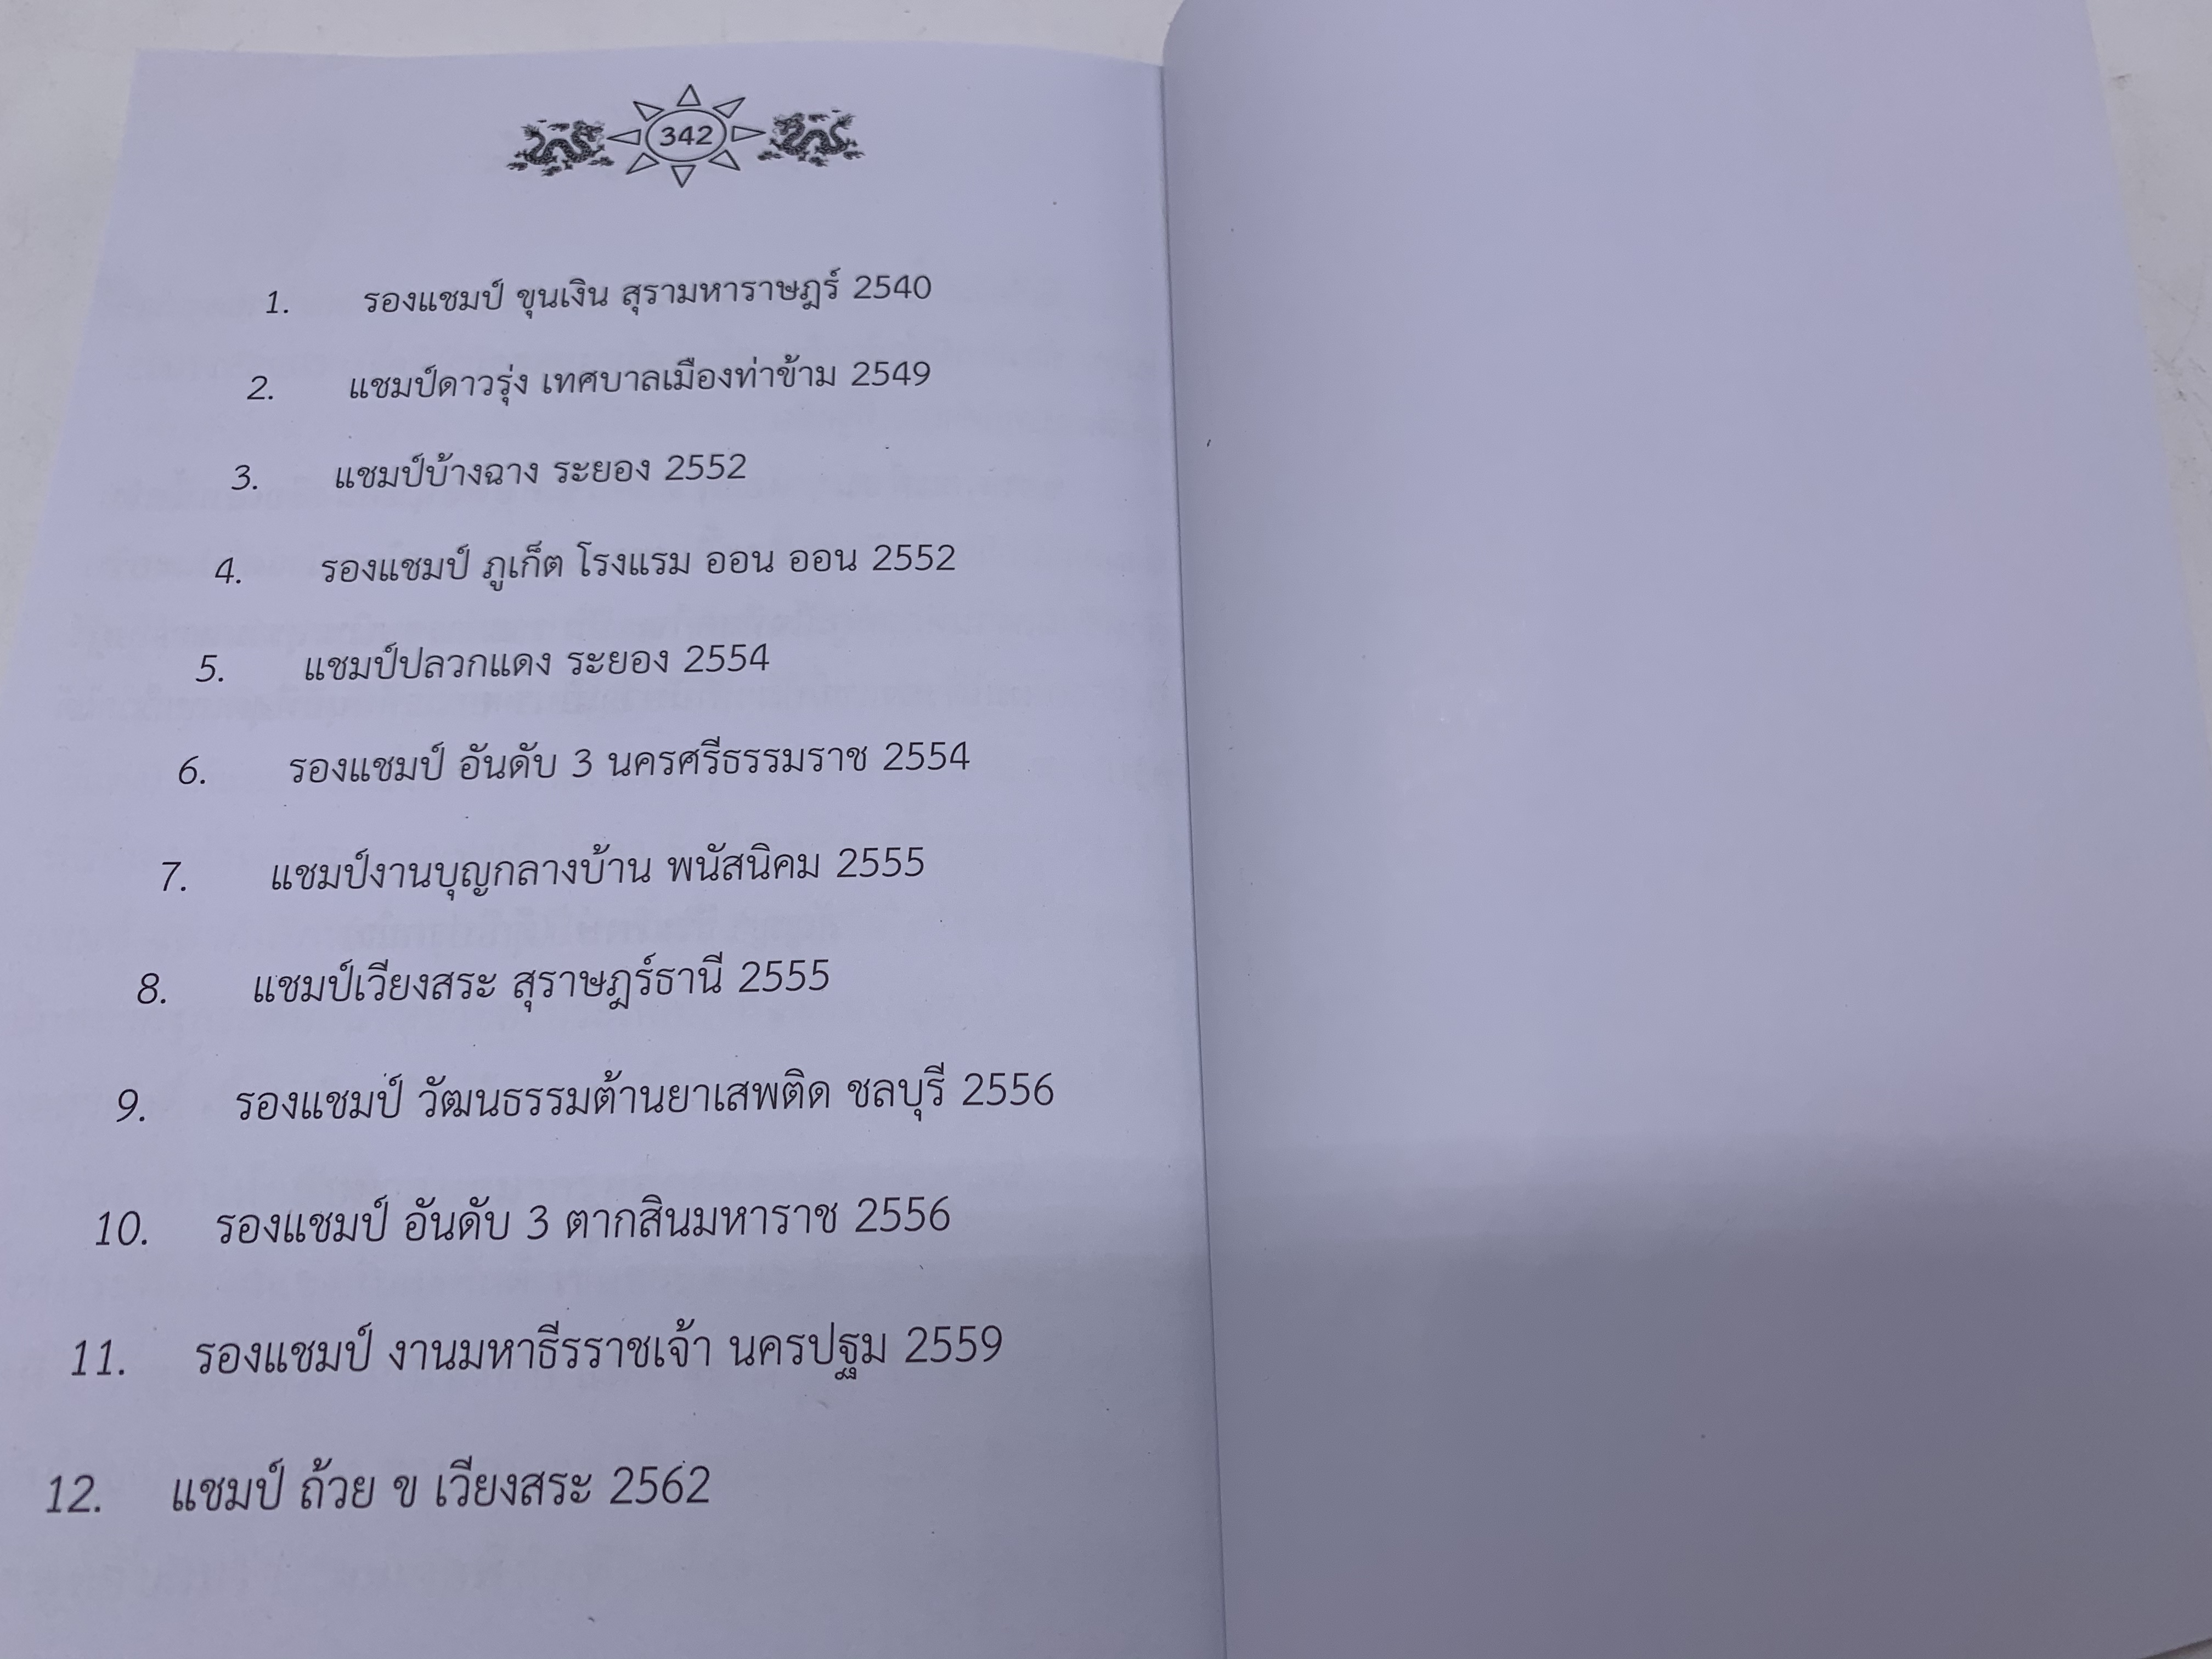 342
1. รองแชมป์ ขุนเงิน สุรามหาราษฎร์ 2540
2. แชมป์ดาวรุ่ง เทศบาลเมืองท่าข้าม 2549
3. แชมป์บ้างฉาง ระยอง 2552
4. รองแชมป์ ภูเก็ต โรงแรม ออน ออน 2552
5. แชมป์ปลวกแดง ระยอง 2554
6. รองแชมป์ อันดับ 3 นครศรีธรรมราช 2554
7. แชมป์งานบุญกลางบ้าน พนัสนิคม 2555
8. แชมป์เวียงสระ สุราษฎร์ธานี 2555
9. รองแชมป์ วัฒนธรรมต้านยาเสพติด ชลบุรี 2556
10. รองแชมป์ อันดับ 3 ตากสินมหาราช 2556
11. รองแชมป์ งานมหาธีรราชเจ้า นครปฐม 2559
12. แชมป์ ถ้วย ข เวียงสระ 2562